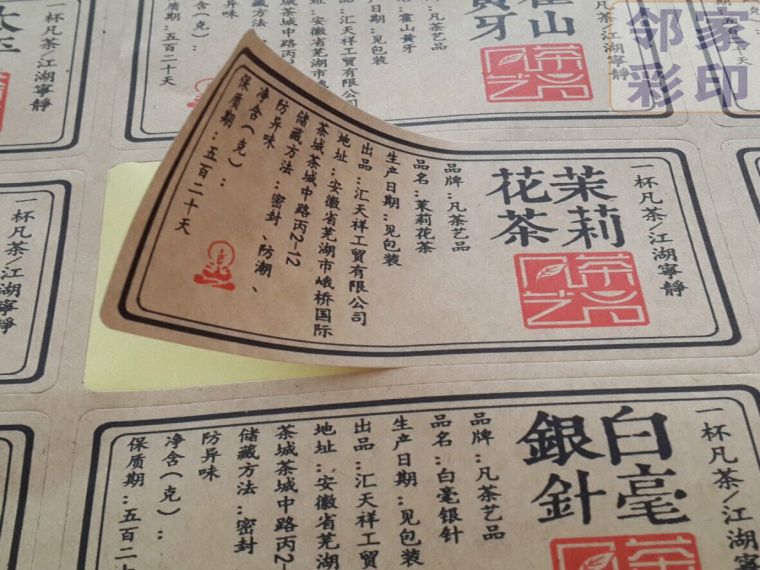 邻家
彩印
一杯凡茶/江湖寧靜
霍山
黄牙
品名:霍山黄牙
生产日期:见包装
出品:汇天祥工贸有限公司
地址:安徽省芜湖市峨
茶城茶城中路丙2-12
一杯凡茶/江湖寧靜
五百二十天
一杯凡茶/江湖寧靜
茉莉
花茶
品牌:凡茶艺品
品名:茉莉花茶
生产日期:见包装
出品:汇天祥工贸有限公司
地址:安徽省芜湖市峨桥国际
茶城茶城中路丙2-12
储藏方法:密封、防潮、
防异味
净含(克):
保质期:五百二十天
一杯凡茶/江湖寧靜
一杯凡茶/江湖寧
白毫
銀針
品牌:凡茶艺品
品名:白毫银针
生产日期:见包装
出品:汇天祥工贸
地址:安徽省芜湖
茶城茶城中路丙2
储藏方法:密封
防异味
净含(克):
保质期:五百二